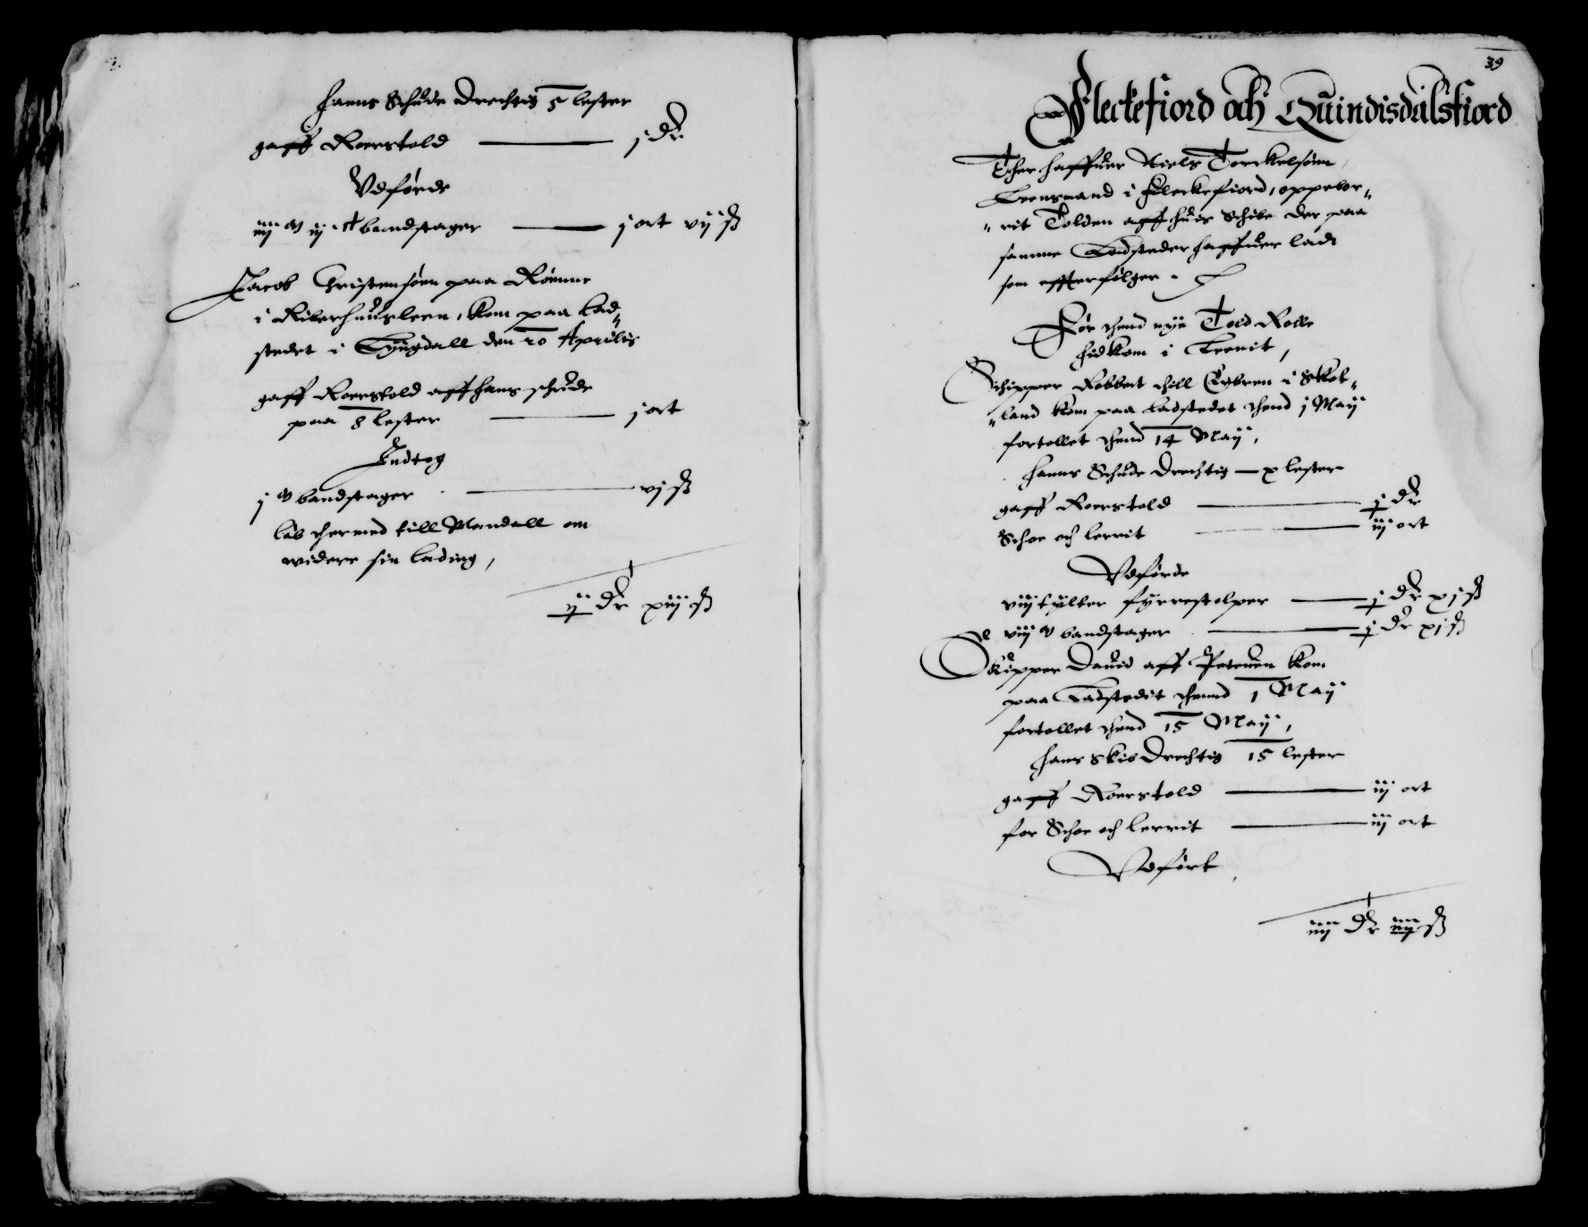 hanns Schude drechtig 5 lester
gaff Roerstold j dr
Vdførde
iiij ... bandstager j ort vij ß
Jacob Christensøn paa Rømme
i Riberhuusleen, kom paa Lad-
stedet i Lyngdall den 20 Aprilis
gaff Roerstold aff hans schude
paa 8 lester j ort
Indtog
j ... bandstager vj ß
løb thermed till Mandall om
widere sin lading,
ij dr xiij ß
39
Fleckefiord och Quindisdalsfiord
Ther haffuer Niels Torckelsønn
Leensmand i Fleckefiord, oppebor-
rit Tolden aff huis Schibe der paa
samme Ladsteder haffuer ladt
som effterfølger
Før thend nye Told Rolle
hidkom i Leenit,
Schipper Robbert till ... i Skot-
land kom paa ladstedet thend j Maij
fortollet thend 14 Maij,
hanns Schude drechtig x lester
gaff Roerstold j dr
Schoe och lerrit iij ort
Vdførde
viij tylter fyrrestolper j dr xj ß
viij ... bandstager j dr xj ß
Skipper Dauid aff ... kom
paa Ladstedit thennd 1 Maij
fortollet thend 15 Maij,
hans Skib drechtig 15 lester
gaff Roerstold iij ort
for Schoe och lerrit iij ort
Vdført
iiij dr ... ß